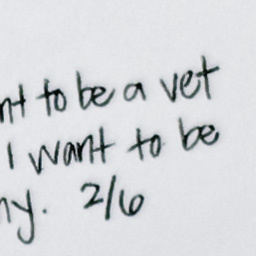 nt to be a vet
I want to be
ny. 2/6